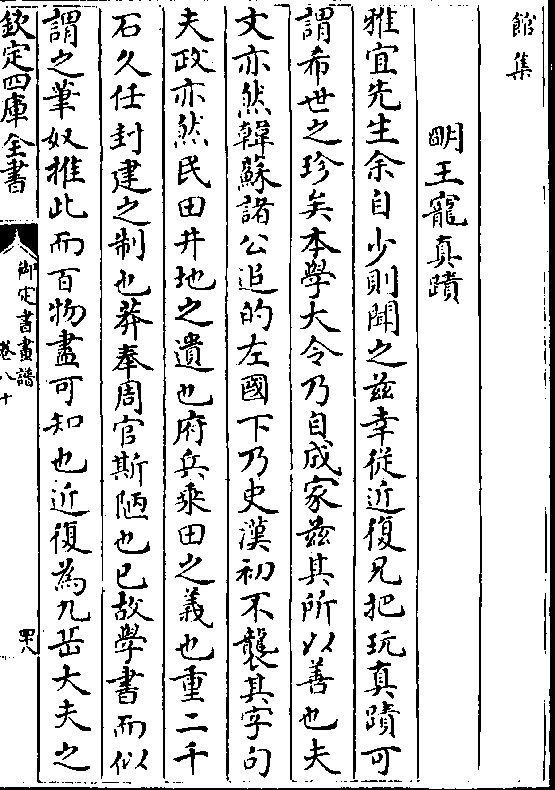 館集
明王寵真蹟
雅宜先生余自少則聞之兹幸從近復兄把玩真蹟可
謂希世之珍矣本學大令乃自成家兹其所以善也夫
文亦然韓蘇諸公追的左國下乃史漢初不襲其字句
夫政亦然民田井地之遺也府兵乘田之義也重二千
石久任封建之制也莽奉周官斯陋也已故學書而似
謂之筆奴推此而百物盡可知也近復為九岳大夫之
欽定四庫全書
御定書畫譜
卷八十
四十八